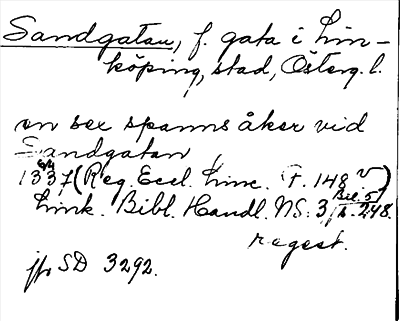 Sandgatan, f. gata i Lin-
köping, stad, Österg. l.
en sex spanns åker vid
Sandgatan
1337 (Reg. Eccl. Linc. F. 148 v)
Link. Bibl. Handl. NS. 3, Bil. 5 s. 248.
regest.
jfr SD 3292.